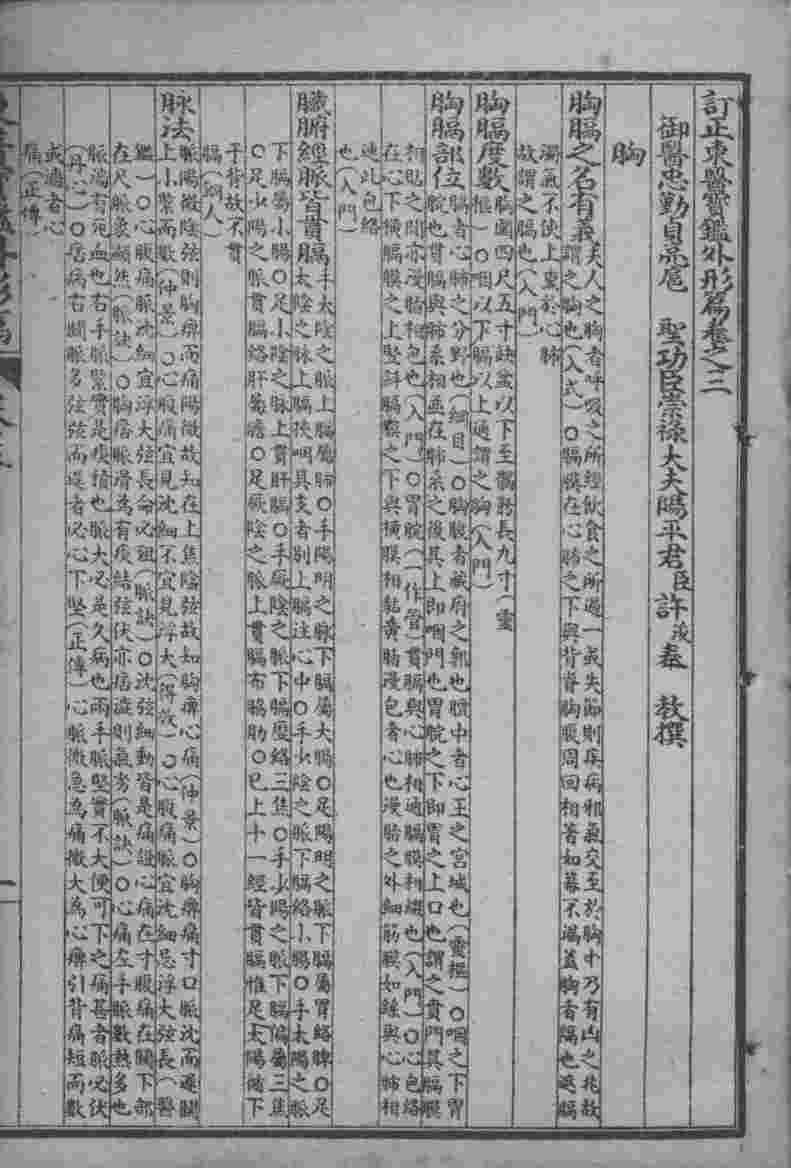 訂正東醫寶鑑外形篇卷之三
御醫忠勤貞亮扈 聖功臣崇祿大夫陽平君臣許浚奉 敎撰
胸
胸膈之名有義夫人之胸者呼吸之所經飮食之所過一或失節則疾病邪氣交至於胸中乃有凶之兆故
謂之胸也(入式)○膈膜在心肺之下與背脊胸腹周回相著如幕不漏盖胸者隔也遮膈
濁氣不使上熏於心肺
故謂之膈也(入門)
胸膈度數胸圍四尺五寸缺盆以下至𩩲骬長九寸(靈
樞)○咽以下膈以上通謂之胸(入門)
胸膈部位膈者心肺之分野也(綱目)○胸腹者藏府之郭也膻中者心主之宮城也(靈樞)○咽之下胃
脘也貫膈與肺系相並在肺系之後其上卽咽門也胃脘之下卽胃之上口也謂之賁門其膈膜
相貼之間亦漫脂相包也(入門)○胃脘(一作管)貫膈與心肺相通膈膜相綴也(入門)○心包絡
在心下橫膈膜之上竪斜膈膜之下與橫膜相黏黃脂漫包者心也漫脂之外細筋膜如絲與心肺相
連此包絡
也(入門)
臟腑經脈皆貫膈手太陰之脈上膈屬肺○手陽明之脈下膈屬大腸○足陽明之脈下膈屬胃絡脾○足
太陰之脈上膈挾咽其支者別上膈注心中○手少陰之脈下膈絡小腸○手太陽之脈
下膈屬小腸○足少陰之脈上貫肝膈○手厥陰之脈下膈歷絡三焦○手少陽之脈下膈偏屬三焦
○足少陽之脈貫膈絡肝屬膽○足厥陰之脈上貫膈布脇肋○已上十一經皆貫膈惟足太陽循下
于背故不貫
膈(銅人)
脉法脈陽微陰弦則胸痺而痛陽微故知在上焦陰弦故知胸痺心痛(仲景)○胸痺痛寸口脈沈而遲關
上小緊而數(仲景)○心腹痛宜見沈細不宜見浮大(得效)○心腹痛脈宜沈細忌浮大弦長(醫
鑑)○心腹痛脈沈細宜浮大弦長命必殂(脈訣)○沈弦細動皆是痛證心痛在寸腹痛在關下部
在尺脈象顯然(脈訣)○胸痞脈滑爲有痰結弦伏亦痞澁則氣劣(脈訣)○心痛左手脈數熱多也
脈澁有死血也右手脈緊實是痰積也脈大必是久病也兩手脈堅實不大便可下之痛甚者脈必伏
(丹心)○痞病右關脈多弦弦而遲者必心下堅(正傳)心脈微急爲痛微大爲心痺引背痛短而數
或濇者心
痛(正傳)